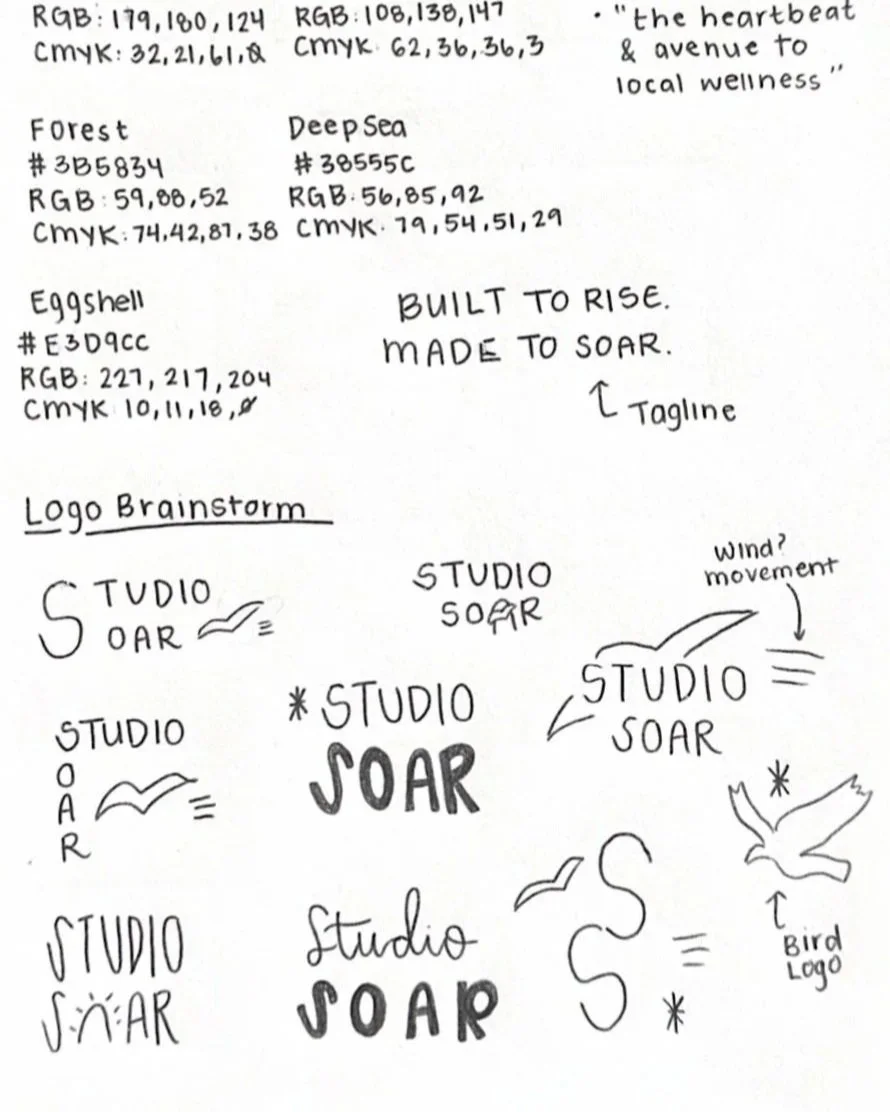 RGB: 179,180,124
CMYK: 32,21,61,0
RGB: 108,138,147
CMYK. 62,36,36,3
• "the heartbeat
& avenue to
local wellness"
Forest
#3B5834
RGB: 59,88,52
CMYK: 74,42,87,38
Deep Sea
#38555C
RGB. 56,85,92
CMYK. 79,54,51,29
Eggshell
#E3D9CC
RGB: 227, 217, 204
CMYK 10,11,18,0
BUILT TO RISE.
MADE TO SOAR.
Tagline
Logo Brainstorm
STUDIO
OAR
STUDIO
SOAR
Wind?
movement
STUDIO
SOAR
STUDIO
O
A
R
* STUDIO
SOAR
*
Bird
Logo
STUDIO
SOAR
Studio
SOAR
S
S
*